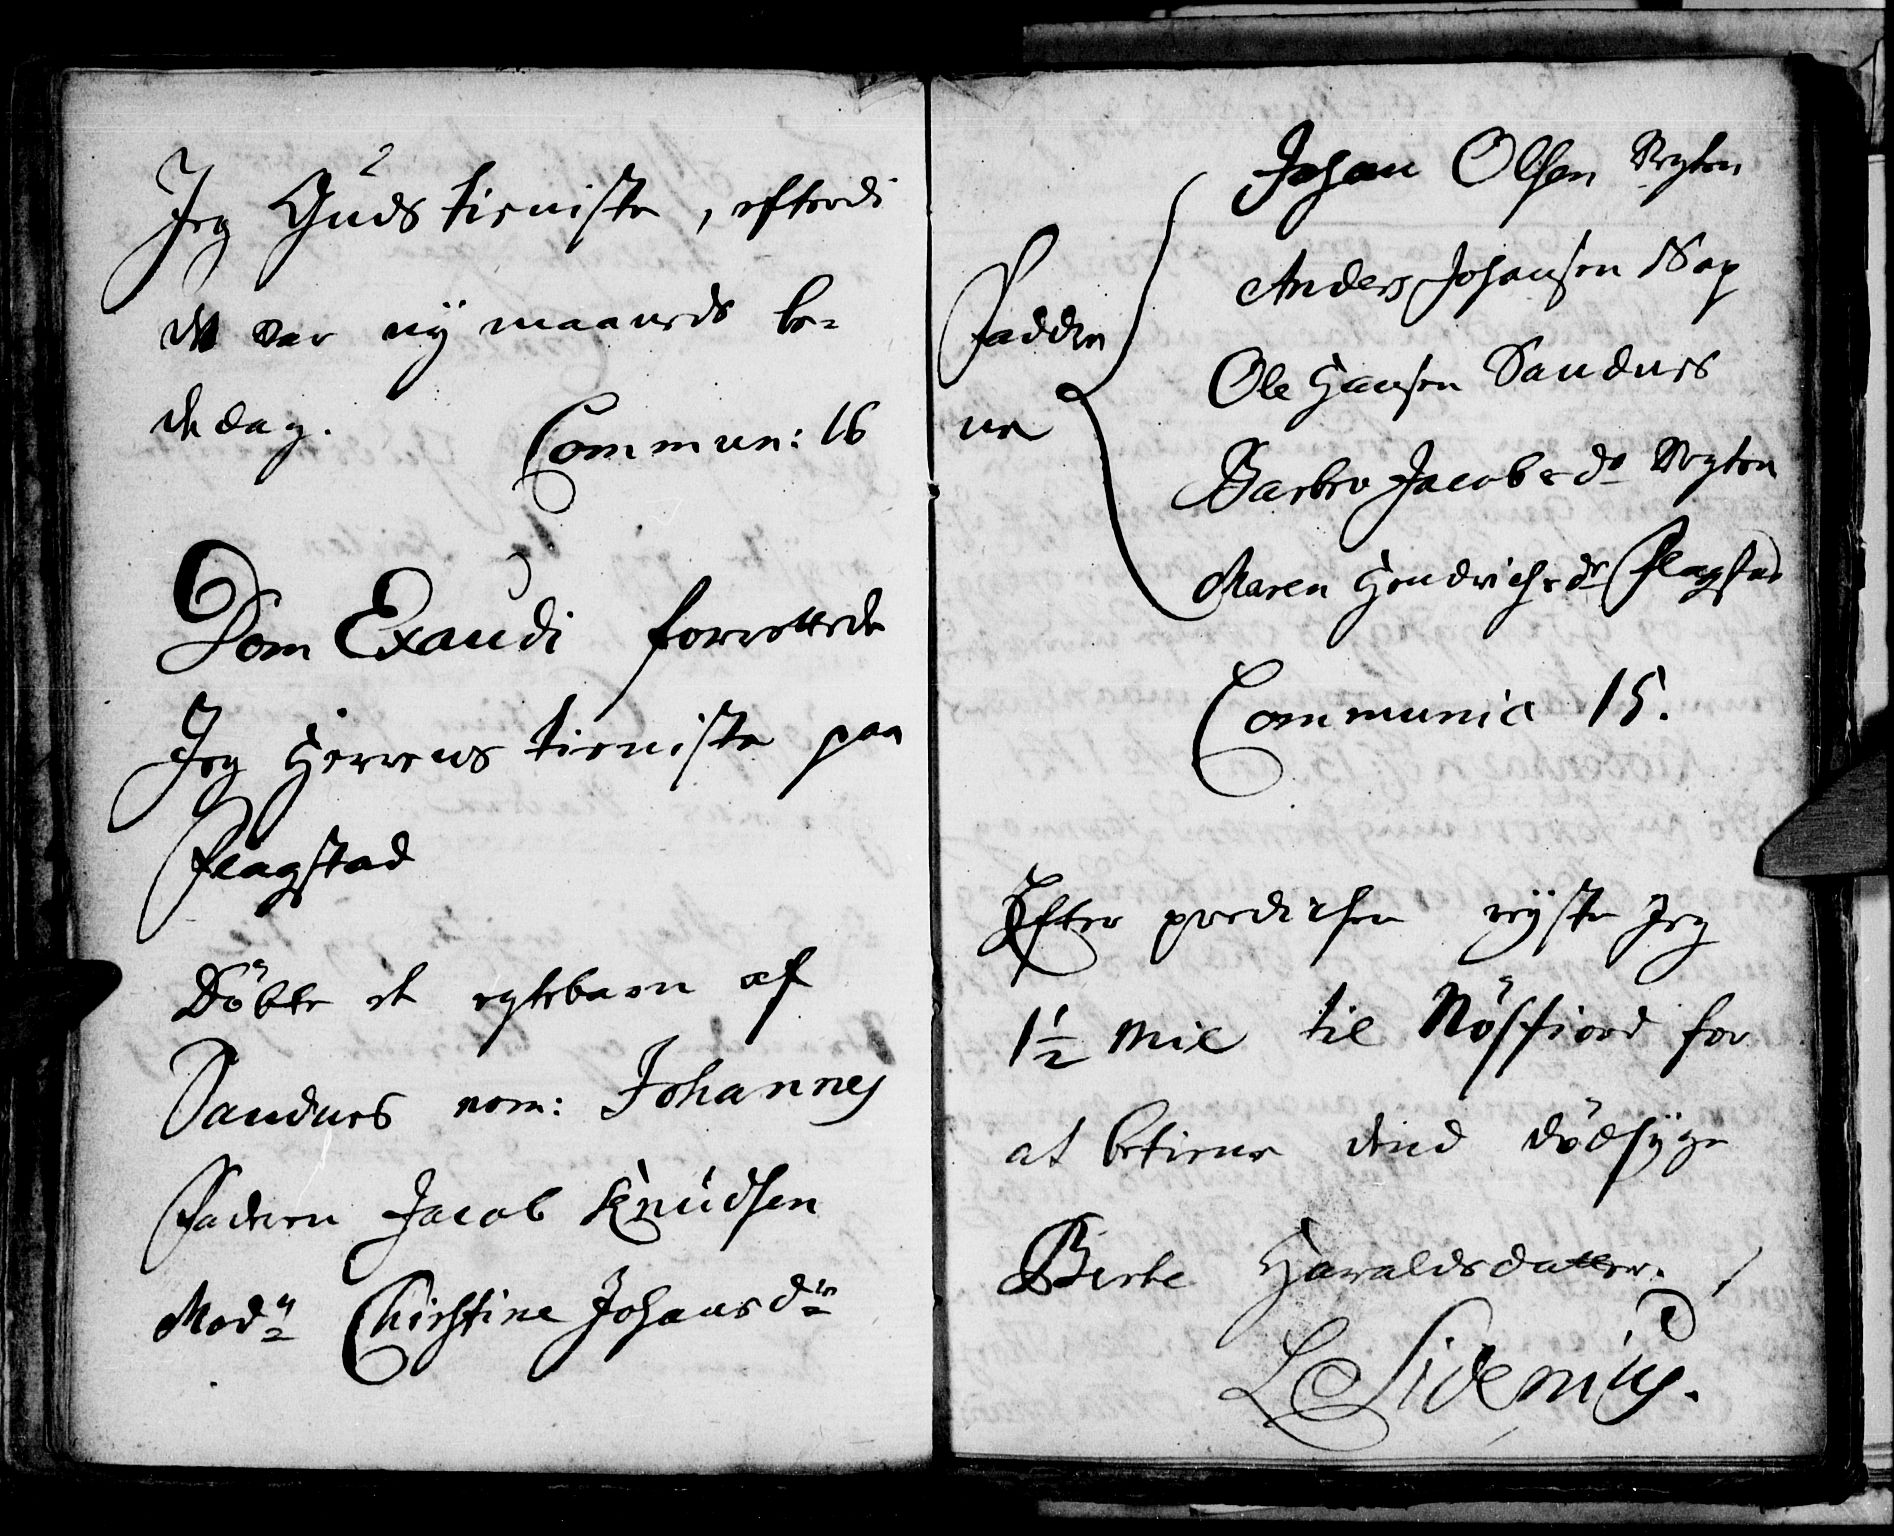 Jeg Guds tieniste, efterdi
det var ny maaneds be-
dedag. Commun: 16
Dom Exaudi forrettede
Jeg Herrens tieniste paa
Flagstad
Döbte et egtebarn af
Sandnes nom: Johannes
Faderen Jacob Knudsen
Modn Christine Johansdr
Johan Olsen Negten
Anders Johansen Nap
Fadder
ne
Ole Hansen Sandnes
Barbro Jacobsdr Negten
Maren Hendrichsdr Flagstad
Communic 15.
Efter predichen reyste Jeg
1½ Miil til Nösfiord for
at betiene dend dödsyge
Birte Haraldsdatter.
L Sidenius.